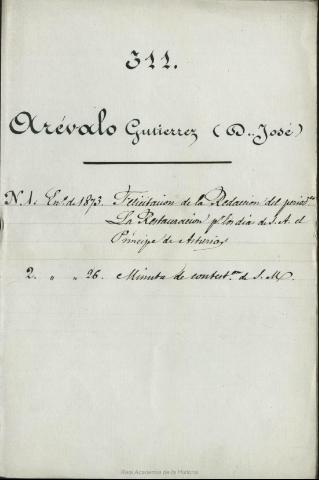 311.
Arévalo Gutierrez (Dn José)
N. 1. En.º de 1873. Felicitacion de la Redaccion del periód.co
La Restauracion pr los dia de S. A. el
Príncipe de Asturias
2. " " 26. Minuta de contest.on de S. M.
Real Academia de la Historia